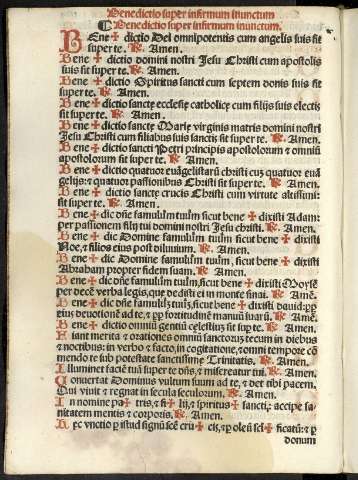 Benedictio super infirmum inunctum
¶ Benedictio super infirmum inunctum.
BEne ✠ dictio Dei omnipotentis cum angelis suis sit
super te. ℟. Amen.
Bene ✠ dictio domini nostri Jesu Christi cum apostolis
suis sit super te. ℟. Amen.
Bene ✠ dictio Spiritus sancti cum septem donis suis sit
super te. ℟. Amen.
Bene ✠ dictio sanctę ecclesię catholicę cum filijs suis electis
sit super te. ℟. Amen.
Bene ✠ dictio sanctę Marię virginis matris domini nostri
Jesu Christi cum filiabus suis sanctis sit super te. ℟. Amen.
Bene ✠ dictio sancti Petri principis apostolorum & omniũ
apostolorum sit super te. ℟. Amen.
Bene ✠ dictio quatuor euãgelistarũ christi eius quatuor euã
gelijs: & quatuor passionibus Christi sit super te. ℟. Amen.
Bene ✠ dictio sanctę crucis Christi cum virtute altissimi:
sit super te. ℟. Amen.
Bene ✠ dic dñe famulum tuũm, sicut bene ✠ dixisti Adam:
per passionem filij tui domini nostri Jesu christi. ℟. Amen.
Bene ✠ dic Domine famulum tuum, sicut bene ✠ dixisti
Noe, & filios eius post diluvium. ℟. Amen.
Bene ✠ dic Domine famulum tuum, sicut bene ✠ dixisti
Abraham propter fidem suam. ℟. Amen.
Bene ✠ dic dñe famulum tuũm, sicut bene ✠ dixisti Moysẽ
per decẽ verba legis, que dedisti ei in monte sinai. ℟. Amẽ.
Bene ✠ dic dñe famulũ tuũ, sicut bene ✠ dixisti dauid: ꝓpter
eius deuotionẽ ad te, & ꝓp fortitudinẽ manuũ suarũ. ℟. Amẽ.
Bene ✠ dictio omniũ gentiũ cęlestiũ, sit sup te. ℟. Amen.
Fiant merita & orationes omniũ sanctorũ, tecum in diebus
& noctibus: in verbo & facto, in cogitatione, & omni tempore cõ
mendo te sub potestate sanctissimę Trinitatis. ℟. Amen.
Illuminet faciẽ tuã super te dñs, & misereatur tui. ℟. Amẽ.
Conuertat Dominus vultum suum ad te, & det tibi pacem.
Qui viuit & regnat in secula seculorum. ℟. Amen.
In nomine pa ✠ tris, & fi ✠ lij, & spiritus ✠ sancti; accipe sa-
nitatem mentis & corporis. ℟. Amen.
Hęc vnctio ꝑ istud signũ scẽ crũ ✠ cis, & ꝑ oleũ scl ✠ ficatũ: & ꝑ
donum